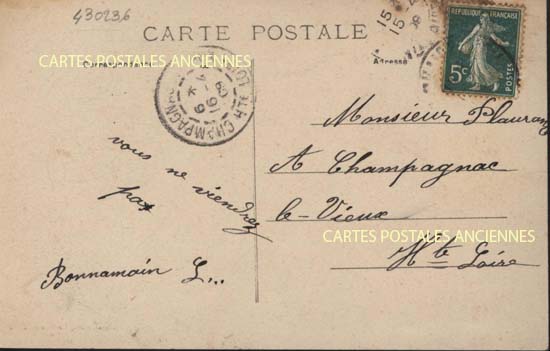 430236
CARTE POSTALE
CARTES POSTALES ANCIENNES
Correspondance
Adresse
RÉPUBLIQUE FRANÇAISE
5c
POSTES
15
15
CHAMPAGNAC
Hte LOIRE
Monsieur
A Champagnac
le-Vieux
CARTES POSTALES ANCIENNES
Hte Loire
vous ne viendrez
pas
Bonnamain L...